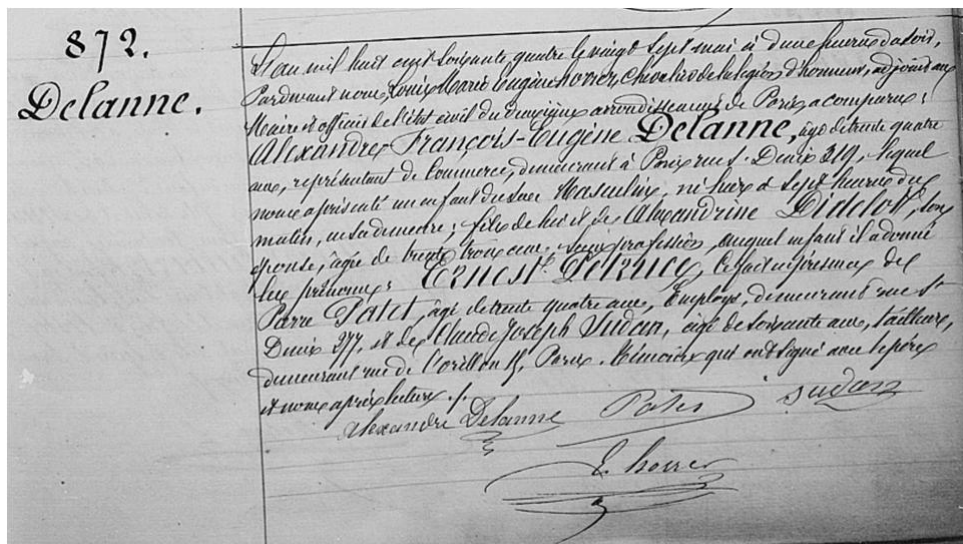 872.
Delanne.
L'an mil huit cent soixante quatre le vingt sept mai à d'une heure du soir,
Pardevant nous, Louis Marie Eugène, Chevalier de la légion d'honneur, adjoint au
Maire et officier de l'état civil du arrondissement de Paris a comparu:
Alexandre François-Eugène Delanne, âgé de trente quatre
ans, représentant de Commerce, demeurant à Paris rue St. Denis 319, lequel
nous a présenté un enfant du sexe Masculin, né hier à sept heures du
matin, en sa demeure; fils de lui et de Alexandrine Didelot, son
épouse, âgée de trente trois ans, sans profession, auquel enfant il a donné
les prénoms: Ernest, ce fait en présence de
Pierre Patet, âgé de trente quatre ans, Employé, demeurant rue St
Denis 277, et de Claude Joseph Sudan, âgé de soixante ans, tailleur,
demeurant rue de l'orillon, Paris. Témoins qui ont signé avec le père
et nous après lecture ./.
Alexandre Delanne Patet Sudan